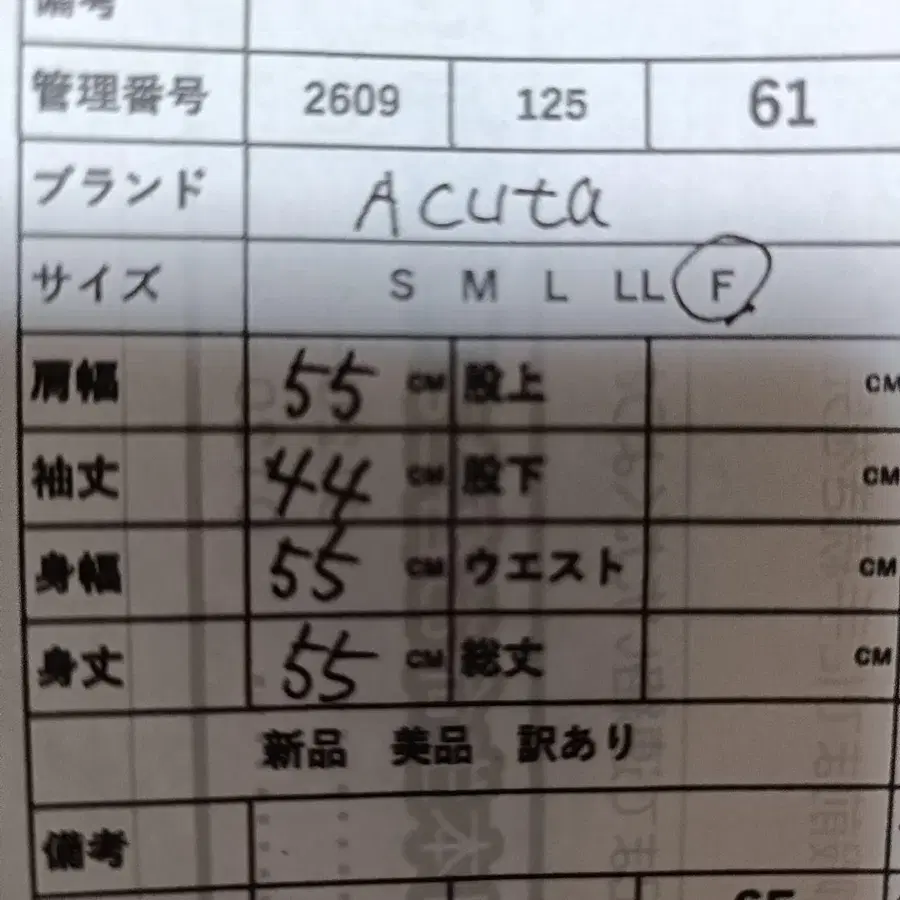 備考
管理番号 2609 125 61
ブランド Acuta
サイズ S M L LL F
肩幅 55 CM 股上 CM
袖丈 44 CM 股下 CM
身幅 55 CM ウエスト CM
身丈 55 CM 総丈 CM
新品 美品 訳あり
備考